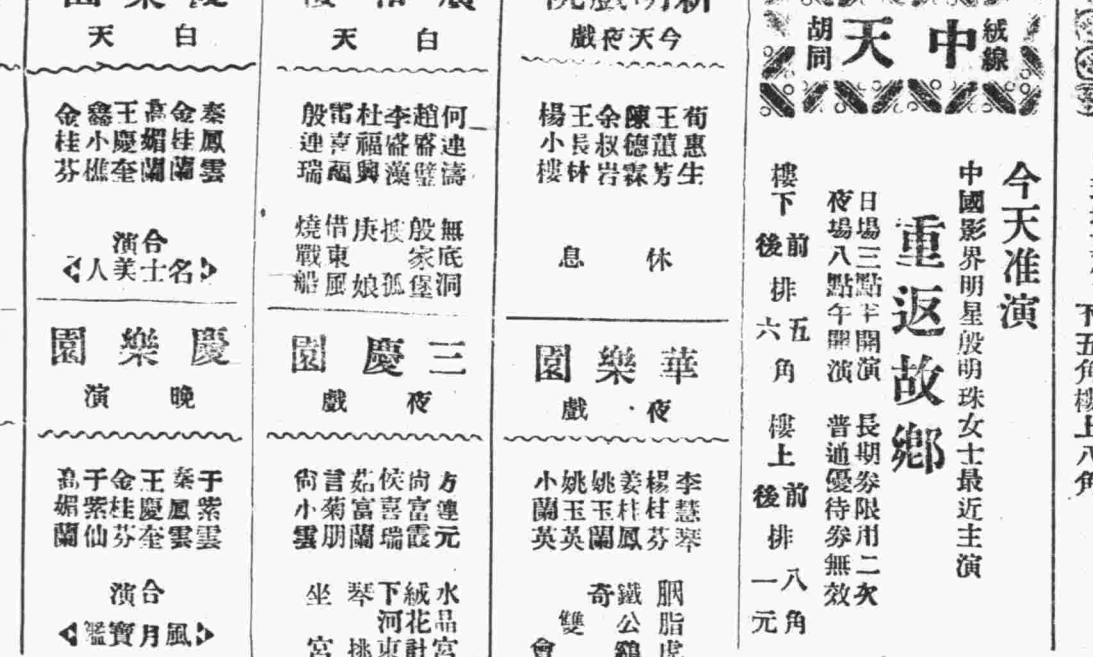 下五角樓上八角
絨線胡同
中天
今天准演
中國影界明星殷明珠女士最近主演
重返故鄉
日場三點半開演 長期券限用二次
夜場八點午開演 普通優待券無效
樓下 前後排 五六角
樓上 前後排 八角一元
新明戲院
今天夜戲
荀惠生
王蕙芳
陳德霖
余叔岩
王長林
楊小樓
休息
華樂園
夜戲
李慧琴
楊桂芬
姜桂鳳
姚玉蘭
姚玉英
小蘭英
胭脂虎
鐵公鷄
奇雙會
白天
何連濤
趙盛璧
李盛漢
杜福興
雷喜福
殷連瑞
無底洞
殷家堡
庚娘
借東風
燒戰船
三慶園
夜戲
方連元
尚富霞
侯喜瑞
茹富蘭
言菊朋
尚小雲
水晶宮
絨花計
下河東
琴挑
坐宮
慶樂園
白天
秦鳳雲
金桂蘭
高媚蘭
王慶奎
鑫小樵
金桂芬
合演
名士美人
慶樂園
晚演
于紫雲
秦鳳雲
王慶奎
金桂芬
于紫仙
高媚蘭
合演
風月寶鑑